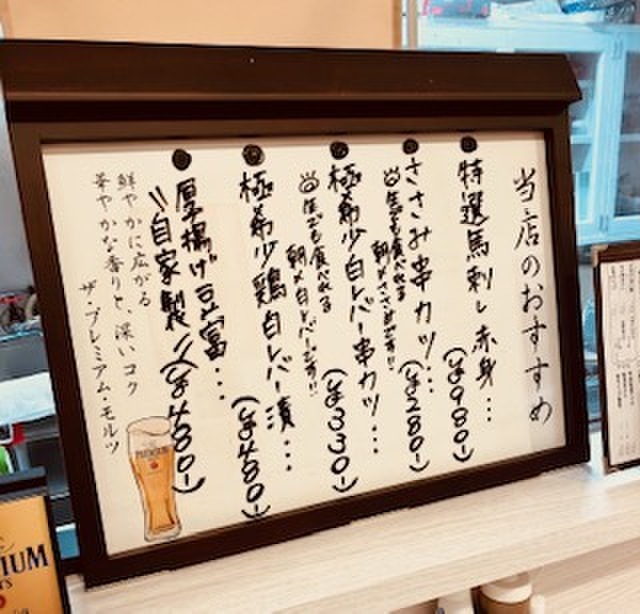 当店のおすすめ
特選馬刺し赤身…
(¥980-)
ささみ串カツ…
(¥280-)
生でも食べれる
朝〆ささみです!!
極希少白レバー串カツ…
(¥330-)
生でも食べれる
朝〆白レバーです!!
極希少鶏白レバー漬…
(¥480-)
厚揚げ豆富…
(¥480-)
自家製
鮮やかに広がる
華やかな香りと、深いコク
ザ・プレミアム・モルツ